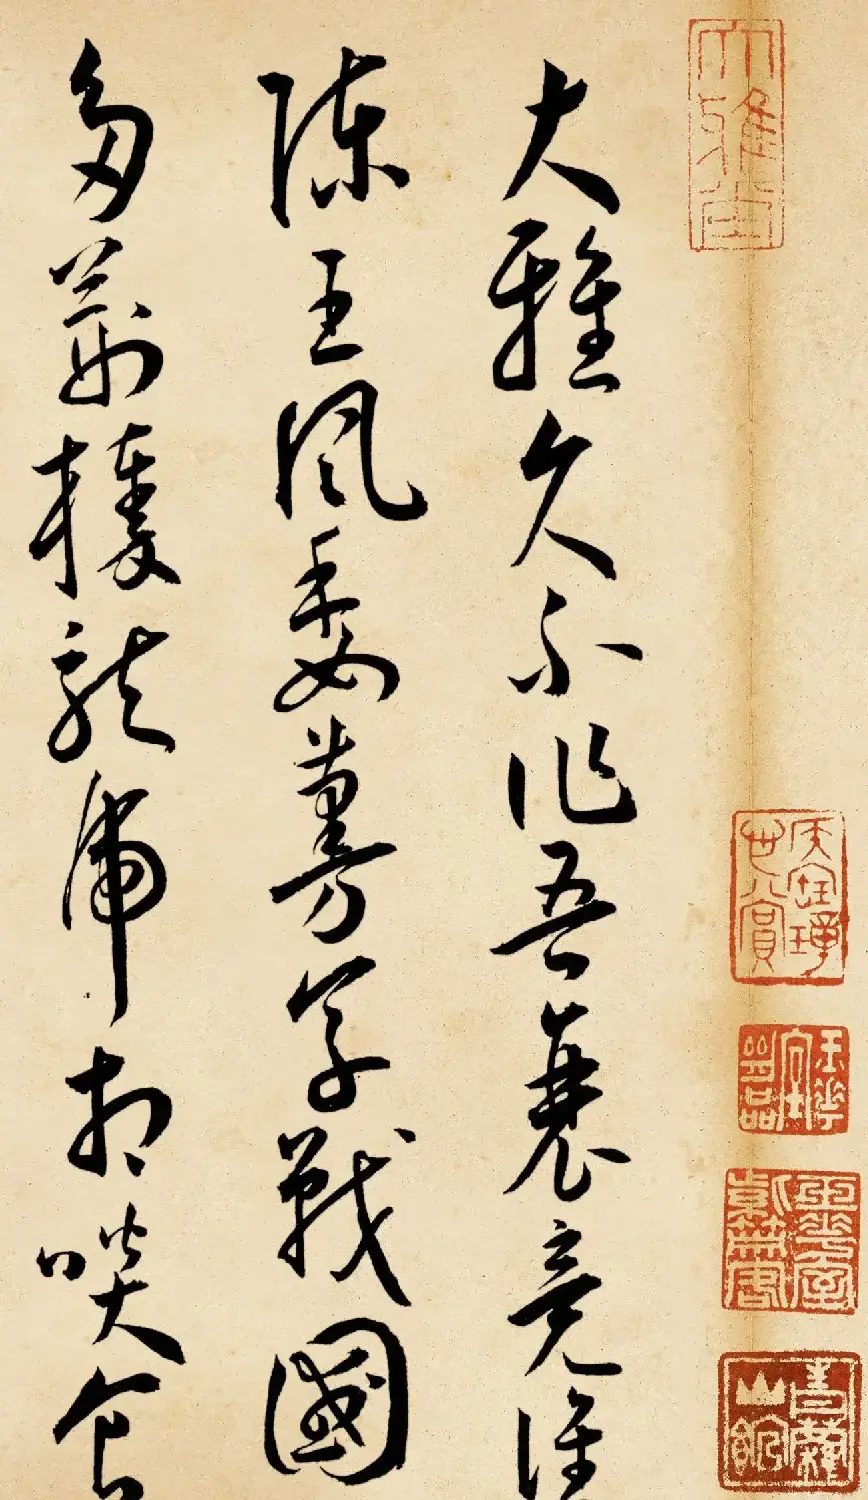 大雅堂
大雅久不作吾衰竟誰
陳王風委蔓草戰國
多荊榛龍虎相啖食